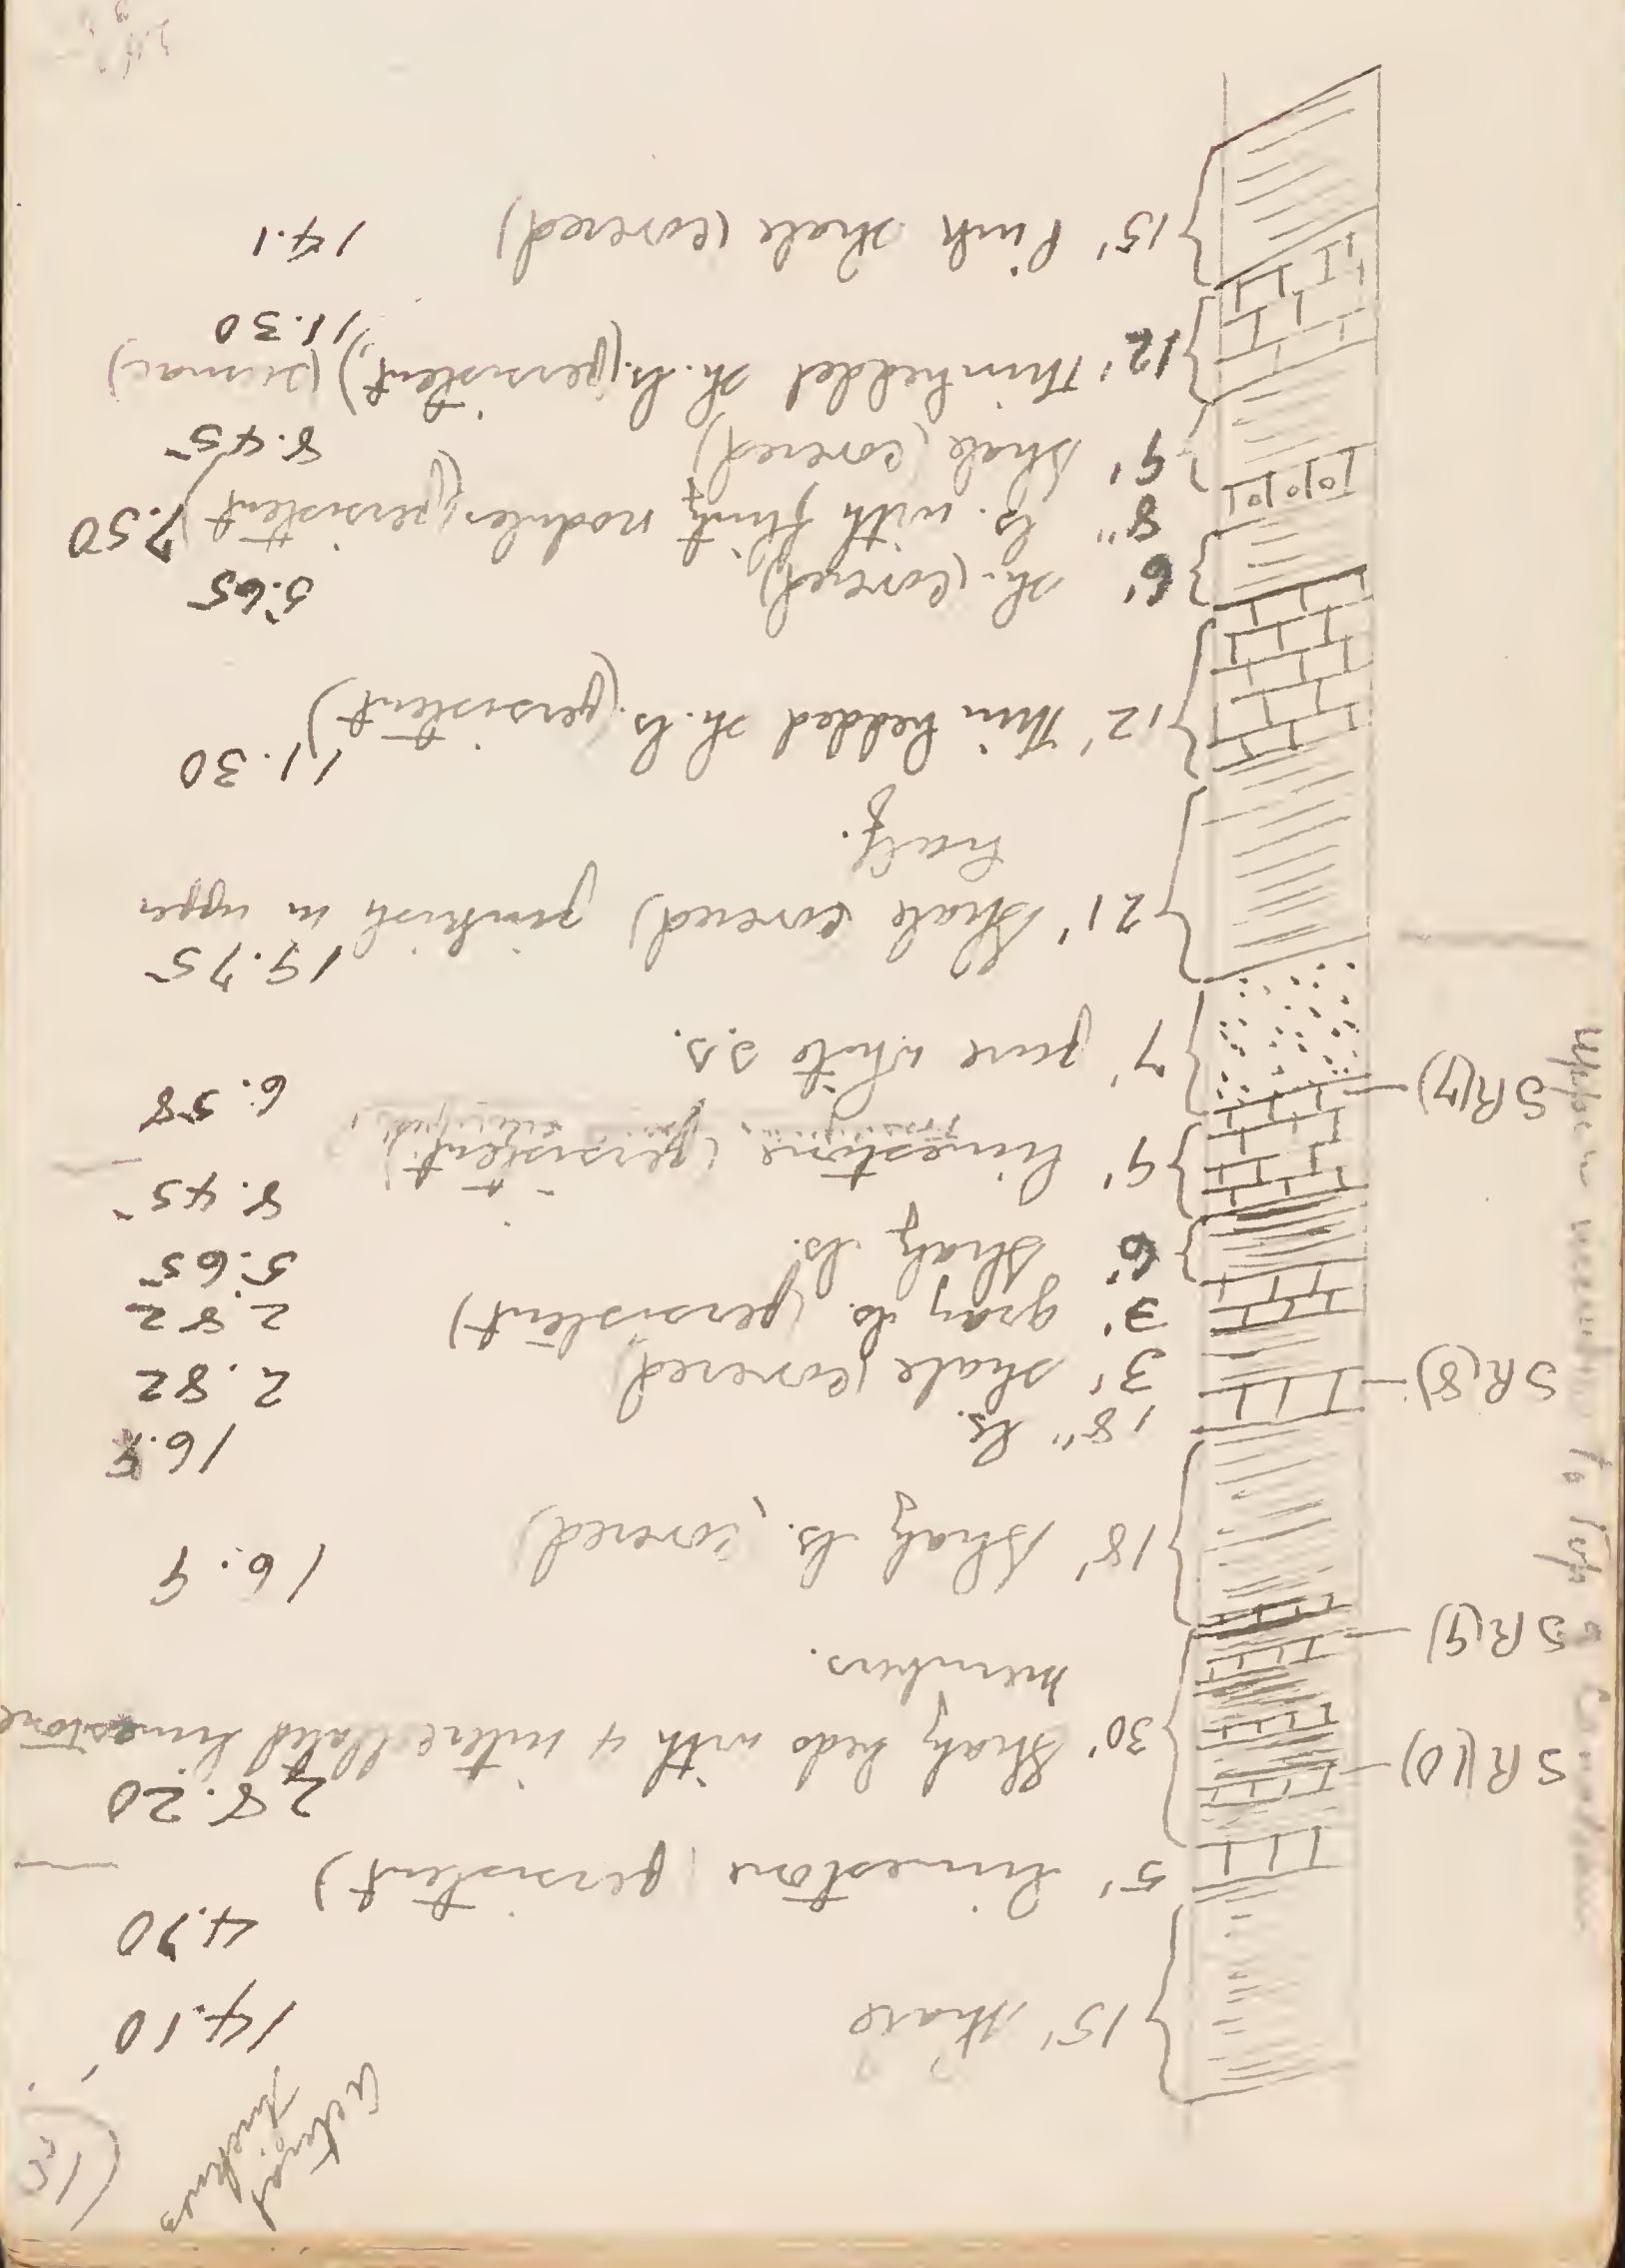 Actual
thickness
15' shale 14.10
5' limestone (persistent) 4.70
30' Shaly beds with 4 intercalated limestone 28.20
members.
SR(10)
SR(9)
18' Shaly ls. (covered) 16.9
18" ls.
SR(8)
3' shale (covered) 2.82
3' gray ls. (persistent) 2.82
6' Shaly ls. 5.65
9' limestone (persistent) 8.45
SR(7)
7' pure white s.s. 6.58
21' Shale covered) pinkish in upper 19.75
half.
12' Thin bedded sh. ls. (persistent) 11.30
6' sh. (covered) 5.65
8" ls. with flinty nodules (persistent) 7.50
9' Shale (covered) 8.45
12' Thin bedded sh. ls. (persistent), (sumac) 11.30
15' Pink shale (covered) 14.1
Upper to Top of Canadian